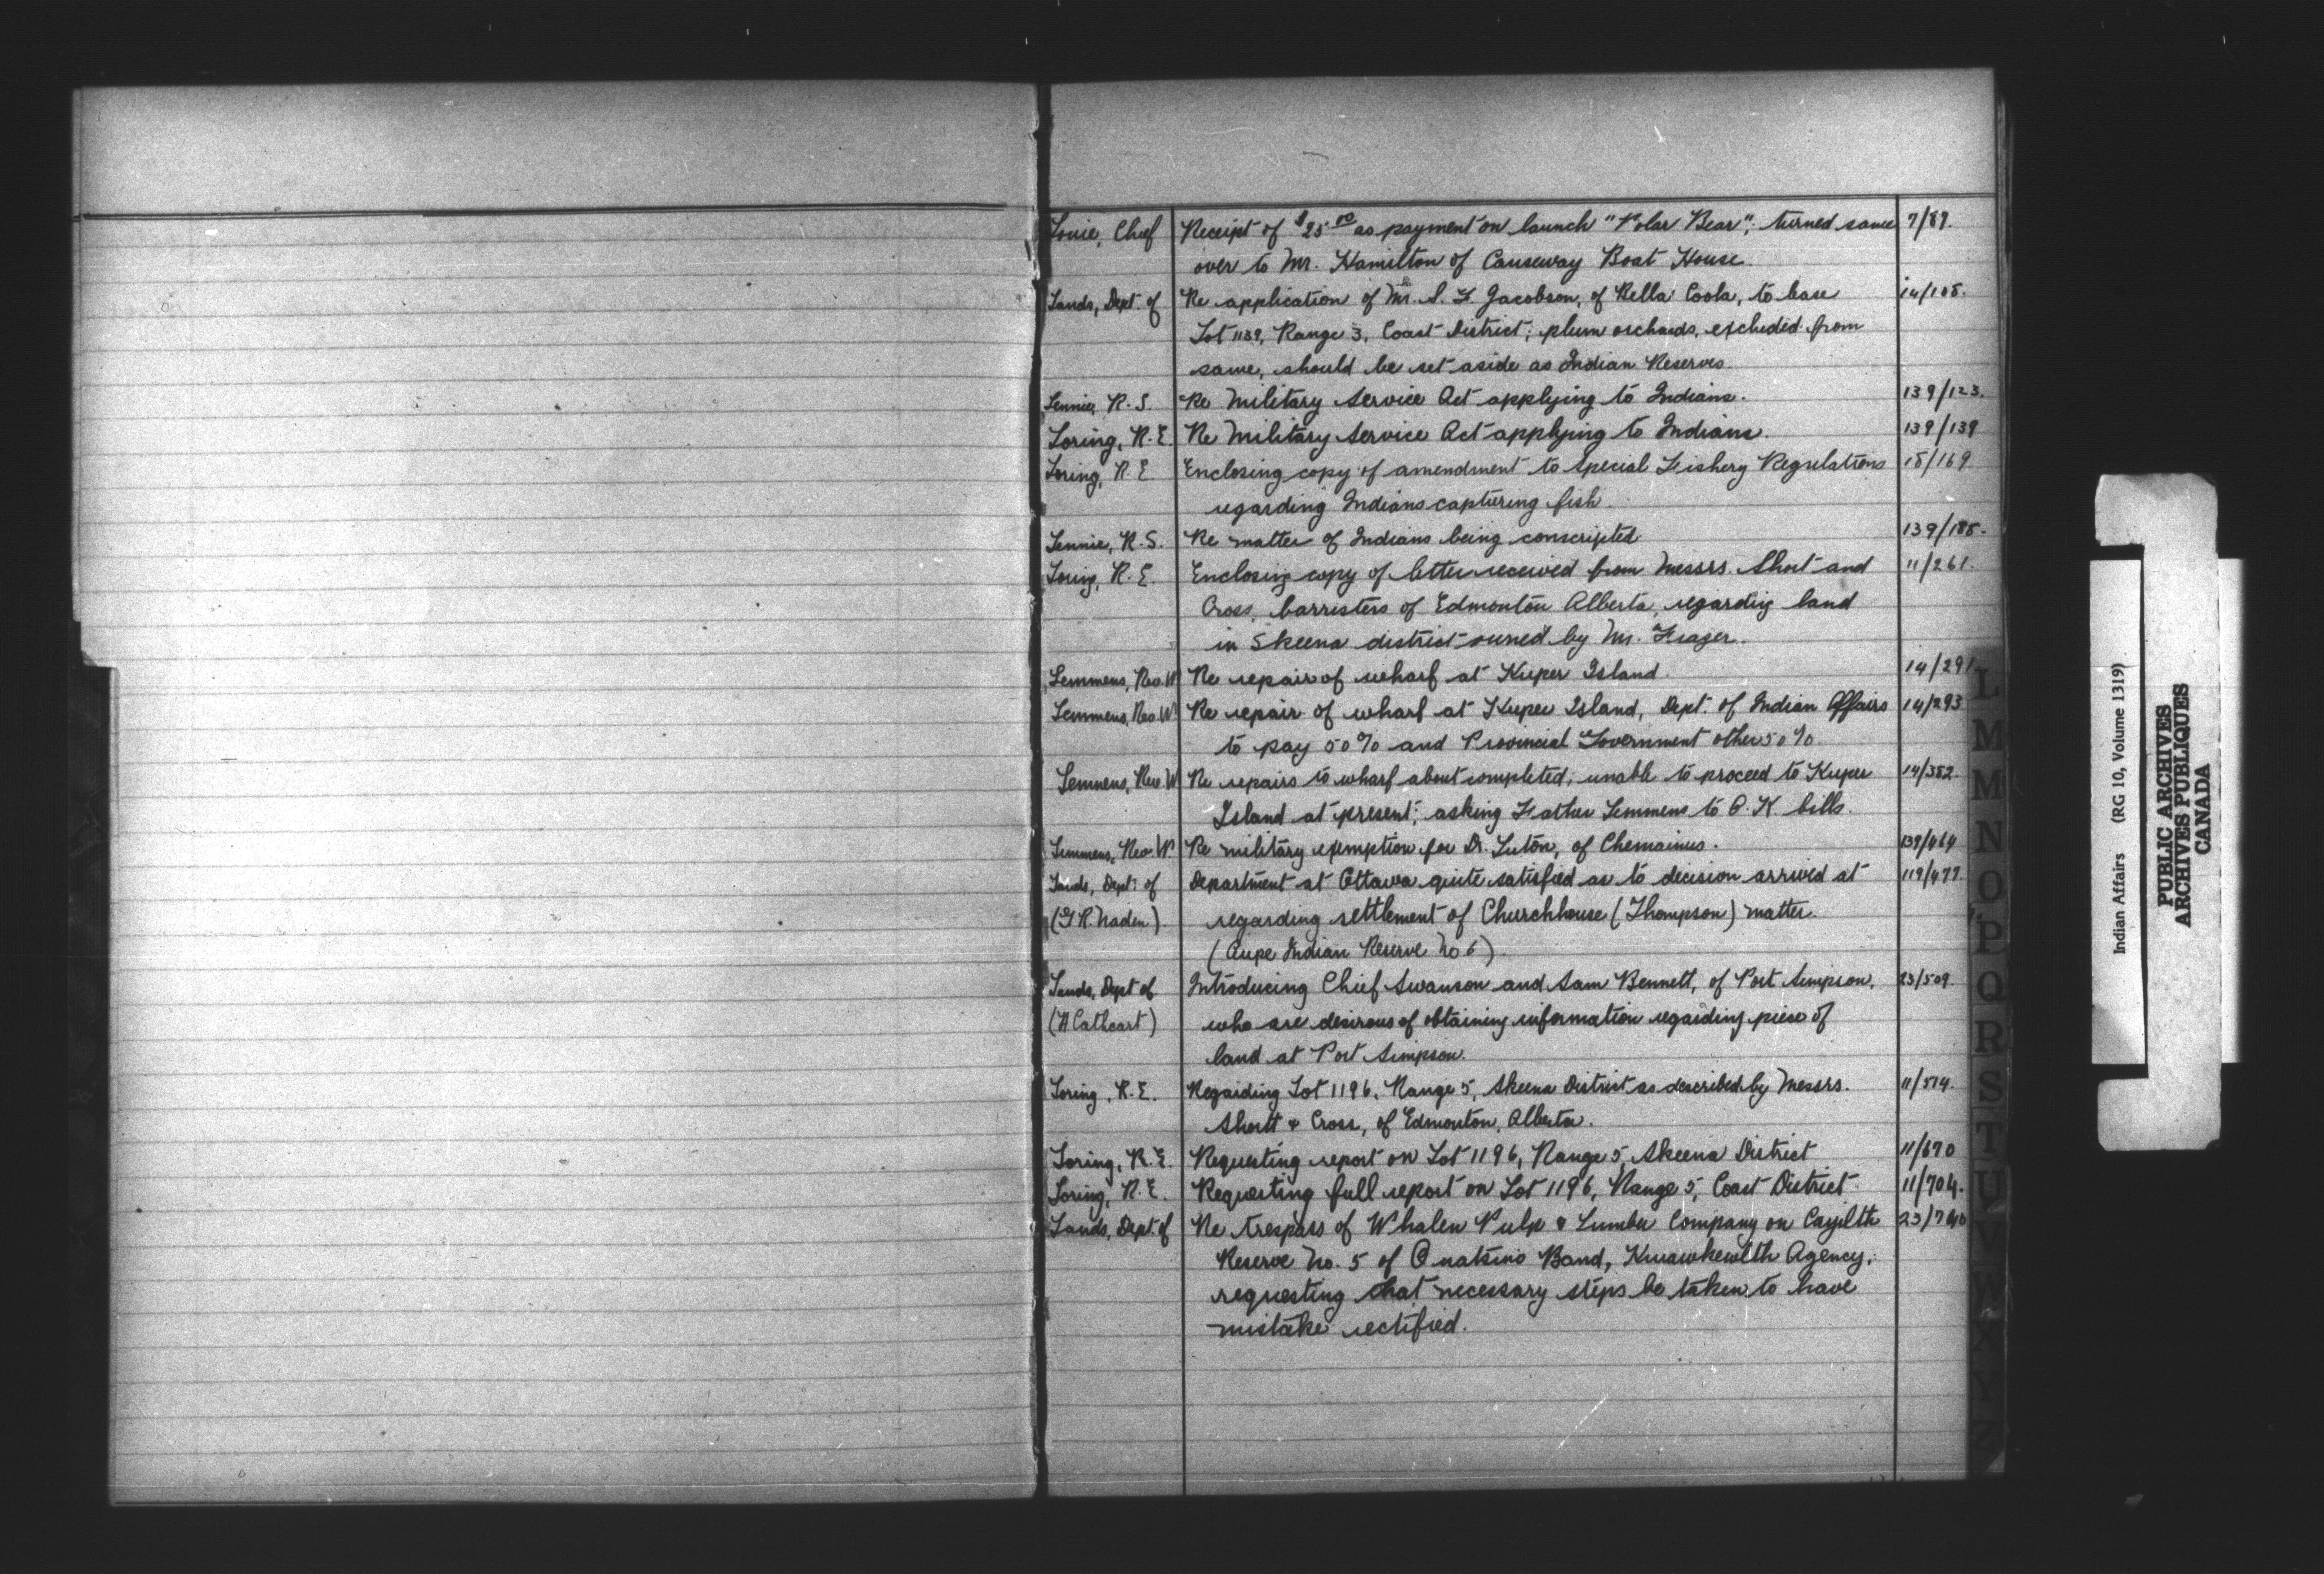 Louie, Chief Receipt of $25.00 as payment on launch "Polar Bear"; turned same 7/89.
over to Mr. Hamilton of Causeway Boat House.
Lands, Dept. of Re application of Mr. S. F. Jacobson, of Bella Coola, to lease 14/108.
Lot 1139, Range 3, Coast District; plum orchards, excluded from
same, should be set aside as Indian Reserves.
Lennie, R. S. Re Military Service Act applying to Indians. 139/123.
Loring, R. E. Re Military Service Act applying to Indians. 139/139
Loring, R. E. Enclosing copy of amendment to Special Fishery Regulations 15/169
regarding Indians capturing fish.
Lennie, R. S. Re matter of Indians being conscripted 139/188.
Loring, R. E. Enclosing copy of letter received from Messrs. Short and 11/261.
Cross, barristers of Edmonton Alberta, regarding land
in Skeena district owned by Mr. Frazer.
Lemmens, Rev. W Re repair of wharf at Kuper Island. 14/291
Lemmens, Rev. W. Re repair of wharf at Kuper Island, Dept. of Indian Affairs 14/293
to pay 50% and Provincial Government other 50%.
Lemmens, Rev. W Re repairs to wharf about completed; unable to proceed to Kuper 14/382.
Island at present; asking Father Lemmens to O.K bills.
Lemmens, Rev. W Re military exemption for Dr. Luton, of Chemainus. 139/464
Lands, Dept. of Department at Ottawa quite satisfied as to decision arrived at 119/477.
(G R. Naden). regarding settlement of Churchhouse (Thompson) matter.
(Aupe Indian Reserve No 6).
Lands, Dept of Introducing Chief Swanson and Sam Bennett, of Port Simpson, 23/509.
(H Cathcart) who are desirous of obtaining information regarding piece of
land at Port Simpson.
Loring, R. E. Regarding Lot 1196, Range 5, Skeena District as described by Messrs. 11/514.
Shortt & Cross, of Edmonton, Alberta.
Loring, R. E. Requesting report on Lot 1196, Range 5, Skeena District 11/670
Loring, R. E. Requesting full report on Lot 1196, Range 5, Coast District 11/704.
Lands, Dept. of Re trespass of Whalen Pulp & Lumber Company on Cayilth 23/740
Reserve No. 5 of Quatsino Band, Kwawkewlth Agency;
requesting that necessary steps be taken to have
mistake rectified.
L
M
M
N
O
P
Q
R
S
T
U
V
W
X
Y
Z
Indian Affairs (RG 10, Volume 1319)
PUBLIC ARCHIVES
ARCHIVES PUBLIQUES
CANADA